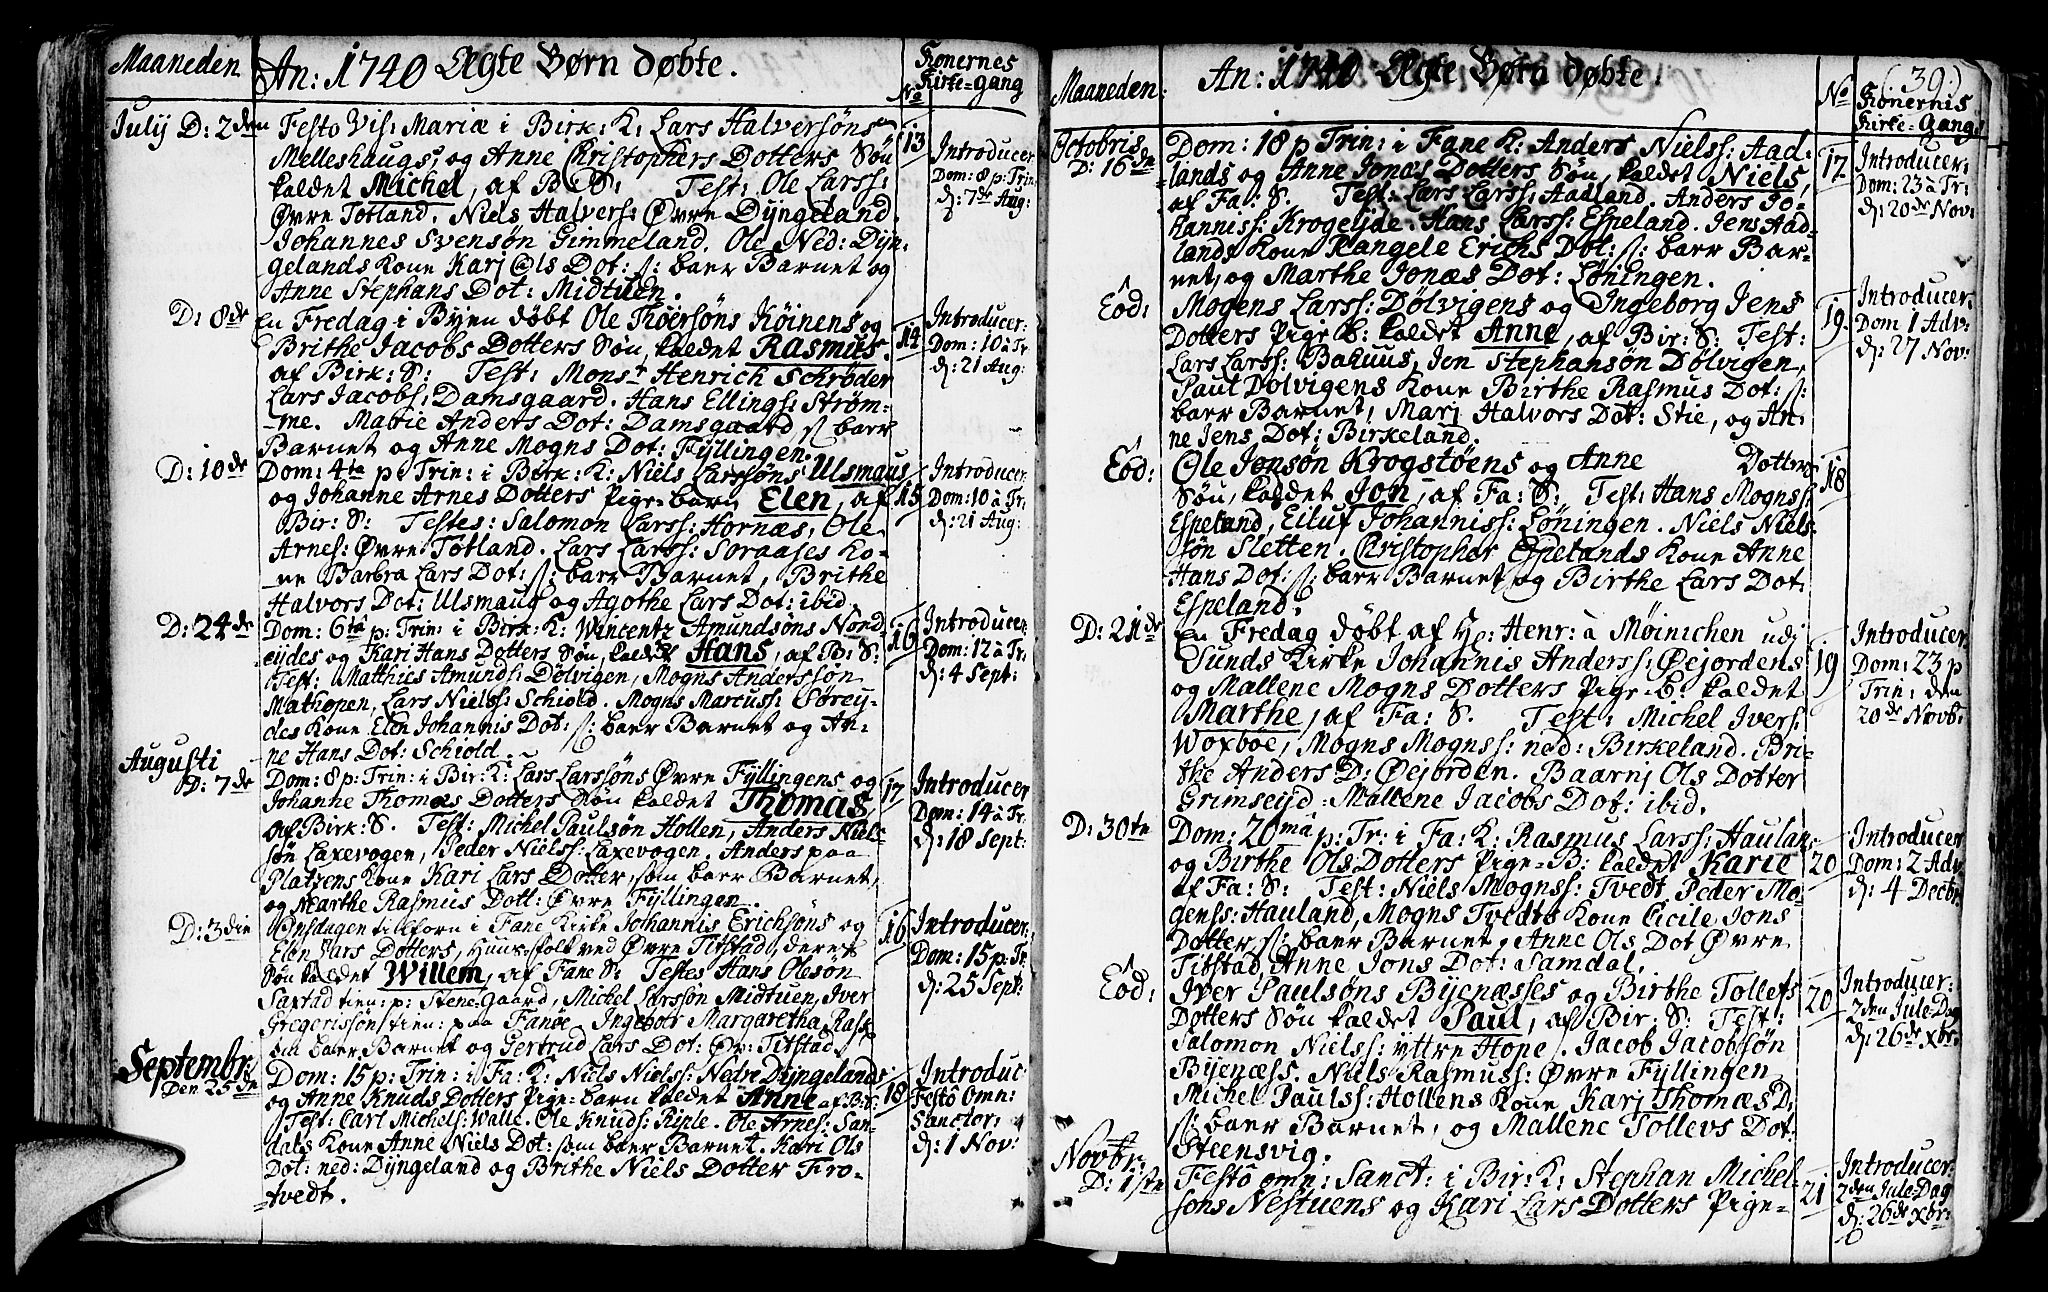 Maaneden
An: 1740 Ægte Børn døbte.
Konernes
Kirke-gang
No
July D: 2den
Festo Vis: Mariæ i Birk: K: Lars Halversøns
Melleshaugs, og Anne Christophers Dotters Søn
kaldet Michel, af B: S: Test: Ole Larss:
Øvre Totland. Niels Halvers: Øvre Dyngeland.
Johannes Svensøn Gimmeland. Ole Ned: Dyn-
gelands Kone Karj Ols Dot: s: baer Barnet og
Anne Stephans Dot: Midtuen.
13
Introducer
Dom: 8 p: Trin:
d: 7de Aug:
D: 8de
en Fredag i Byen døbt Ole Thoersøns Køinens og
Brithe Jacobs Dotters Søn, kaldet Rasmus.
af Birk: S: Test: Monsr Henrich Schrøder
Lars Jacobs: Damsgaard. Hans Ellings: Strøm-
me. Marie Anders Dot: Damsgaard, s: baer
Barnet og Anne Mogns Dot: Fyllingen.
14
Introducer:
Dom: 10 à Tr
d: 21 Aug:
D: 10de
Dom: 4ta p: Trin: i Birk: K: Niels Larssøns Ulsmaus
og Johanne Arnes Dotters Pige-barn Elen, af
Bir: S: Testes: Salomon Larss: Hornæs, Ole
Arnes: Øvre Totland. Lars Larss: Soraases Ko-
ne Barbra Lars Dot: s: baer Barnet, Brithe
Halvors Dot: Ulsmaug og Agothe Lars Dot: ibid.
15
Introducer
Dom: 10 à Tr,
d: 21 Aug:
D: 24de
Dom: 6ta p: Trin: i Birk: K: Wincentz Amundsøns Nord
eydes og Kari Hans Dotters Søn, kaldet Hans, af B: S:
Test: Matthius Amunds: Dølvigen, Mogns Anderssøn
Mathopen, Lars Nielss: Schiold. Mogns Marcuss: Sørey-
des Kone Elen Johannis Dot: s: baer Barnet og An-
ne Hans Dot: Schiold.
16
Introducer
Dom: 12 à Tr:
d: 4 Sept:
Augusti
D: 7de
Dom: 8 p: Trin: i Bir: K: Lars Larssøns Øvre Fyllingens og
Johanne Thomæs Dotters Søn kaldet Thomas
af Birk: S. Test: Michel Paulsøn Hollen, Anders Niel-
søn Laxevogen, Peder Nielss: Laxevogen. Anders paa
Platzens Kone Kari Lars Dotter, som baer Barnet,
og Marthe Rasmus Dott: Øvre Fyllingen.
17
Introducer
Dom: 14 à Tr
d: 18 Sept:
D: 3die
Onsdagen tilforn i Fane Kirke Johannis Erichsøns og
Elen Lars Dotters, Huus-folk ved Øvre Titstad, deres
Søn kaldet Willem, af Fane S: Testes Hans Olesøn
Saxtad tien: p: Stene-Gaard, Michel Larssøn Midtuen, Iver
Gregerissøn tien: paa Fanøe, Ingebor Margaretha Rask
som baer Barnet og Gertrud Lars Dot: Øv: Titstad.
16
Introducer
Dom: 15 p: Tr
d: 25 Sept:
Septembr:
Den 25de
Dom: 15 p: Trin: i Fa: K: Niels Nielss: Nedre Dyngelands
og Anne Knuds Dotters Pige-barn kaldet Anne af Bir:
Test: Carl Michels: Walle. Ole Knuds: Riple. Ole Arnes: San-
dals Kone Anne Niels Dot: som baer Barnet. Kari Ols
Dot: ned: Dyngeland og Brithe Niels Dotter Fro-
tvedt.
18
Introduc:
Festo Omn:
Sanctor:
d: 1 Nov:
Maaneden:
An: 1740 Ægte Børn døbte.
No
(39.)
Konernis
Kirke-Gang
Octobris
D: 16de
Dom: 18 p Trin: i Fane K: Anders Nielss: Aad-
lands og Anne Jonas Dotters Søn, kaldet Niels,
af Fa: S. Test: Lars Larss: Aadland. Anders Jo-
hanniss: Krogeljde. Hans Larss: Espeland. Jens Aad-
lands Kone Rangele Erichs Dot: s: baer Bar-
net, og Marthe Jonas Dot: Løningen.
17
Introducer:
Dom: 23 à Tr:
d: 20de Nov:
Eôd:
Mogens Larss: Dølvigens og Ingeborg Jens
Dotters Pige B: kaldet Anne, af Bir: S: Test:
Lars Larss: Bakuus, Jon Stephansøn Dølvigen,
Paul Dølvigens Kone Birthe Rasmus Dot: s:
baer Barnet, Marj Halvors Dot: Stie, og An-
ne Jens Dot: Birkeland.
19.
Introducer.
Dom 1 Adv:
d: 27 Nov:
Eôd:
Ole Jonsøn Krogstøens og Anne Dotters
Søn, kaldet Jon, af Fa: S. Test: Hans Mognss:
Espeland, Eiluf Johanniss: Løningen. Niels Niels-
søn Sletten. Christopher Espelands Kone Anne
Hans Dot: s: baer Barnet og Birthe Lars Dot:
Espeland.
18
D: 21de
en Fredag døbt af Hr: Henr: à Møinichen udj
Sunds Kirke Johannis Anderss: Øejordens
og Mallene Mogns Dotters Pige-B: kaldet
Marthe, af Fa: S. Test: Michel Ivers:
Woxboe, Mogns Mognss: ned: Birkeland. Bri-
the Anders D: Øejorden. Baarnj Ols Dotter
Grimseijd. Mallene Jacobs Dot: ibid.
19
Introducer
Dom: 23 p
Trin: den
20de Novb:
D: 30te
Dom: 20ma p: Tr: i Fa: K: Rasmus Larss: Haulan-
og Birthe Ols Dotters Pige-B: kaldet Karie
af Fa: S: Test: Niels Mognss: Tvedt, Peder Mo-
genss: Hauland, Mogns Tvedts Kone Cicile Jons
Dotter, s: baer Barnet, Anne Ols Dot Øvre
Titstad, Anne Jons Dot: Samdal.
20
Introducer
Dom: 2 Adv
d: 4 Decbr:
Eôd:
Iver Paulsøns Byenæsses og Birthe Tollefs
Dotters Søn kaldet Paul, af Bir: S: Test:
Salomon Nielss: yttre Hope. Jacob Jacobsøn
Byenæss. Niels Rasmuss: Øvre Fyllingen
Michel Paulss: Hollens Kone Karj Thomæs D:
s: baer Barnet, og Mallene Tollevs Dot:
Steensvig.
20
Introducer:
2den Jule-Dag
d: 26de xbr:
Novbr:
D: 1ste
Festô omn: Sanct: i Bir: K: Stephan Michel-
søns Nestuens og Kari Lars Dotters Pige-
21
Introducer:
2den Jule-Dag
d: 26de xbr: